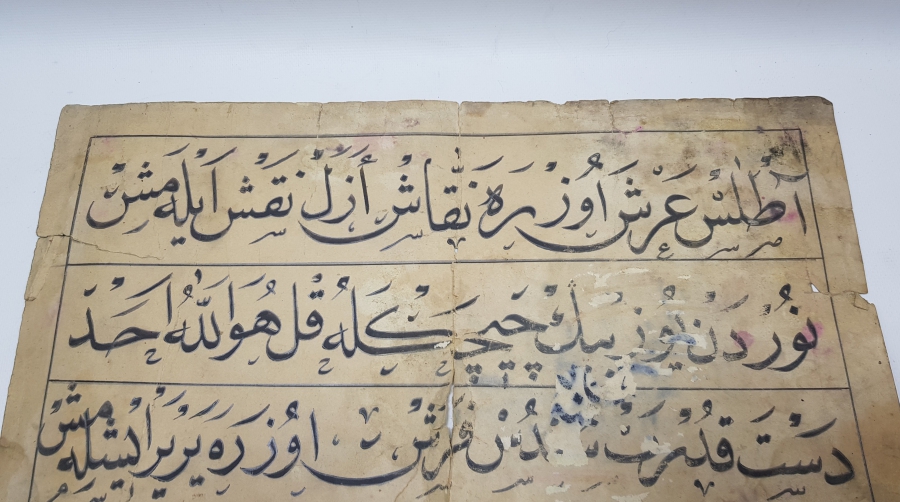 آطلس عرش اوزره نقاش ازل نقش ايله مش
نوردن يوز بيك چيچكله قل هوالله احد
دست قدرت فرش اوزره ير ير ايشله مش